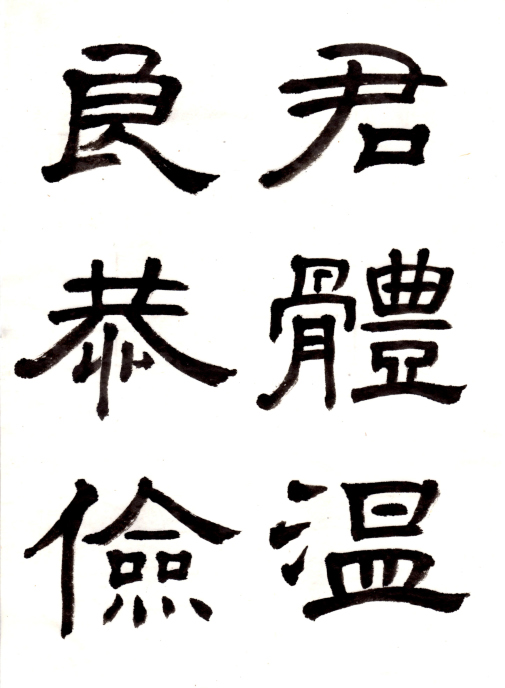 君體溫
良恭儉